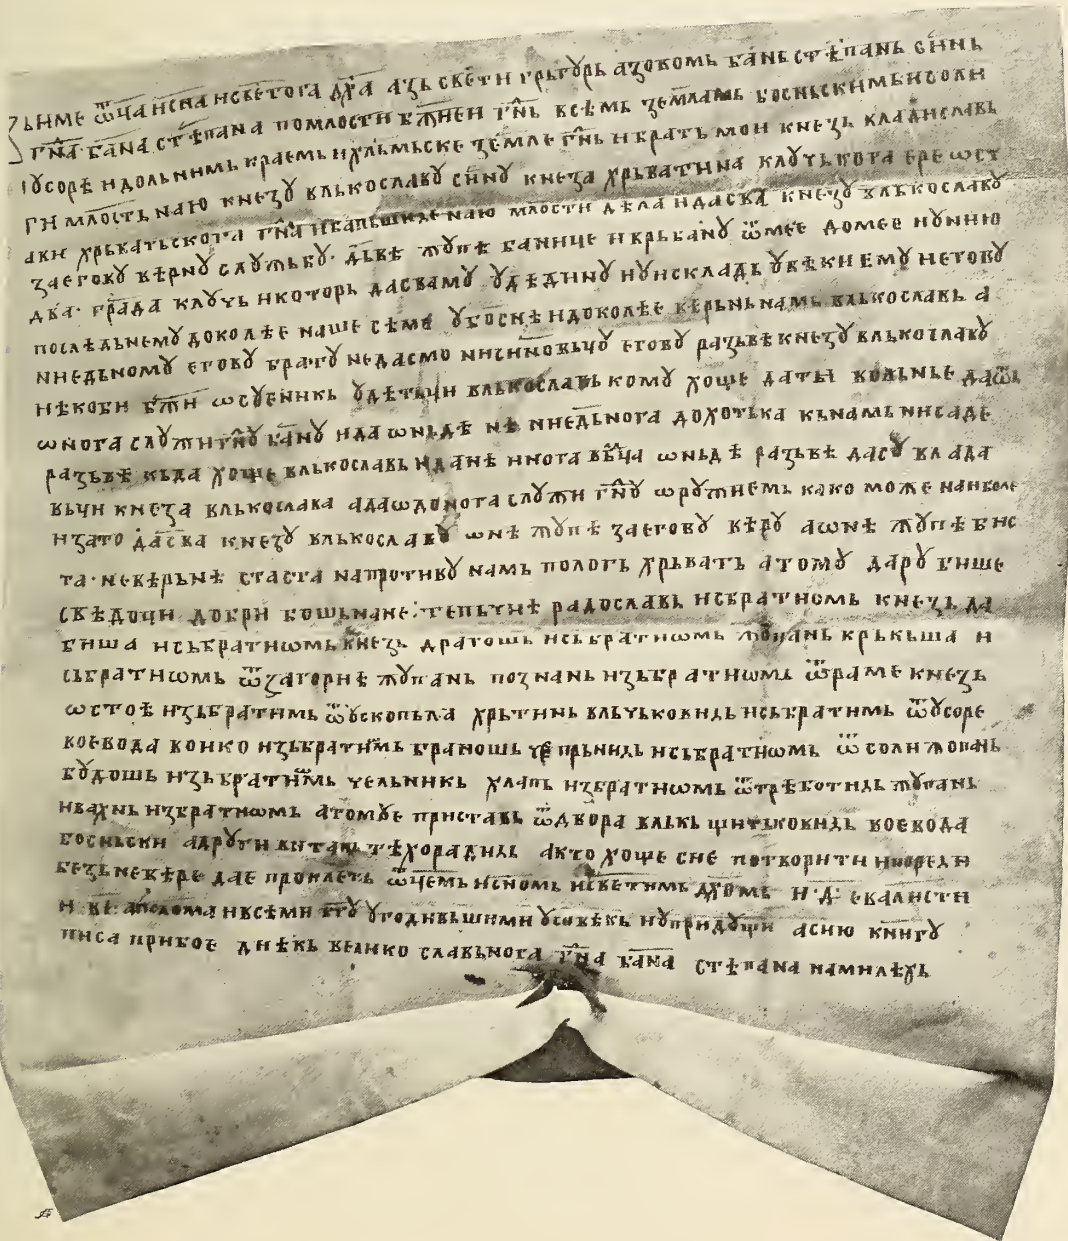 ЗЬИМЕ ѾЧА ИСНА ИСВЕТОГА ДХА АЗЬ СВЕТИ ГРЬГУРЬ АЗОВОМЬ БАНЬ СТѢПАНЬ СИНЬ
ГНА БАНА СТѢПАНА ПОМЛОСТИ БЖИЕИ ГНЬ ВСѢМЬ ЗЕМЛАМЬ БОСНЬСКИМЬ ИСОЛИ
ІꙊСОРѢ ИДОЛЬНИМЬ КРАЕМЬ ИХЛЬМЬСКЕ ЗЕМЛЕ ГНЬ ИБРАТЬ МОИ КНЕЗЬ ВЛАДИСЛАВЬ
ГИ МЛОСТЬ НАЮ КНЕЗꙊ ВЛЬКОСЛАВꙊ СИНꙊ КНЕЗА ХРЬВАТИНА КЛꙊЧЬКОГА ЕРЕ ѠСТ
АКИ ХРЬВАТЬСКОГА ГНА НАЮ МЛОСТИ ДѢЛА ИДАСВА КНЕЗꙊ ВЛЬКОСЛАВꙊ
ЗАЕГОВꙊ ВѢРНꙊ СЛꙊЖЬБꙊ· ДЬВѢ ЖꙊПѢ БАНИЦЕ ИВРЬБАНꙊ ѾМЕЕ ДОМЕЕ ИꙊНИЮ
ДВА· ГРАДА КЛꙊЧЬ ИКОТОРЬ ДАСВАМꙊ ꙊДѢДИНꙊ ИꙊИСКЛАДЬ ꙊВѢКИ ЕМꙊ ИЕГОВꙊ
ПОСЛѢДЬНЕМꙊ ДОКОЛѢЕ НАШЕ СѢМЕ ꙊБОСНѢ ИДОКОЛѢЕ ВѢРЬНЬ НАМЬ ВЛЬКОСЛАВЬ А
НИЕДЬНОМꙊ ЕГОВꙊ БРАТꙊ НЕДАСМО НИСИНОВЬЧꙊ ЕГОВꙊ РАЗЬВѢ КНЕЗꙊ ВЛЬКОСЛАВꙊ
НѢКОБИ БЖИ ѠСꙊЕНИКЬ ꙊДѢТЬЦИ ВЛЬКОСЛАВЬ КОМꙊ ХОЩЕ ДАТЫ ВОЛЬНЬЕ
ѠНОГА СЛꙊЖИ ГНꙊ БАНꙊ ИДА ѠНЬДѢ НѢ НИЕДЬНОГА ДОХОТЬКА КЬНАМЬ НИСАДЕ
РАЗЬВѢ КЬДА ХОЩЕ ВЛЬКОСЛАВЬ ИДАНѢ ИНОГА ВЬЧА ѠНЬДѢ РАЗЬВѢ ДАСꙊ ВЛАДА
ВЬЧИ КНЕЗА ВЛЬКОСЛАВА АДАѠДОНОГА СЛꙊЖИ ГНꙊ ѠРꙊЖИЕМЬ КАКО МОЖЕ НАИБОЛЕ
ИЗАТО ДАСВА КНЕЗꙊ ВЛЬКОСЛАВꙊ ѠНѢ ЖꙊПѢ ЗАЕГОВꙊ ВѢРꙊ АѠНѢ ЖꙊПѢ БИС
ТА· НЕВѢРЬНѢ СТАСТА НАПРОТИВꙊ НАМЬ ПОЛОГЬ ХРЬВАТЬ АТОМꙊ ДАРꙊ БИШЕ
СВѢДОЦИ ДОБРИ БОШЬНАНЕ: ТЕПЬЧИѢ РАДОСЛАВЬ ИСБРАТИОМЬ КНЕЗЬ ДА
БИША ИСЬБРАТИѠМЬ КНЕЗЬ ДРАГОШЬ ИСЬБРАТИѠМЬ ЖꙊПАНЬ КРЬКЬША И
СЬБРАТИѠМЬ ѾЗАГОРИѢ ЖꙊПАНЬ ПОЗНАНЬ ИЗЬБРАТИѠМЬ ѾРАМЕ КНЕЗЬ
ѠСТОѢ ИЗЬБРАТИМЬ ѾꙊСКОПЬЛА ХРЬТИНЬ ВЛЬЧЬКОВИЦЬ ИСЬБРАТИМЬ ѾꙊСОРЕ
ВОЕВОДА ВОИКО ИЗЬБРАТИМЬ БРАНОШЬ ЧЕПРЬНИЦЬ ИСЬБРАТИѠМЬ ѾСОЛИ ЖОПАНЬ
БꙊДОШЬ ИЗЬБРАТИМЬ ЧЕЛЬНИКЬ ХЛАПЬ ИЗБРАТИѠМЬ ѾТРѢБОТИЦЬ ЖꙊПАНЬ
ИВАХНЬ ИЗБРАТИѠМЬ АТОМꙊЕ ПРИСТАВЬ ѾДВОРА ВЛЬКЬ ЦИТЬКОВИЦЬ ВОЕВОДА
БОСНЬСКИ АДРꙊГИ ВИТАНЬ ТѢХОРАДИЦЬ АКТО ХОЩЕ СИЕ ПОТВОРИТИ ИПОРЕЦИ
БЕЗЬНЕВѢРЕ ДАЕ ПРОКЛЕТЬ ѾЦЕМЬ ИСНОМЬ ИСВЕТИМЬ ДХОМЬ И·Д· ЕВАЛИСТИ
И·ВІ· АПСЛОМА ИВСѢМИ ЕГꙊ ꙊГОДИВЬШИМИ ꙊСЬВѢКЬ ИꙊПРИДꙊЩИ АСИЮ КНИГꙊ
ПИСА ПРИБОЕ ДИѢКЬ ВЕЛИКО СЛАВЬНОГА ГНА БАНА СТѢПАНА НАМИЛѢХЬ